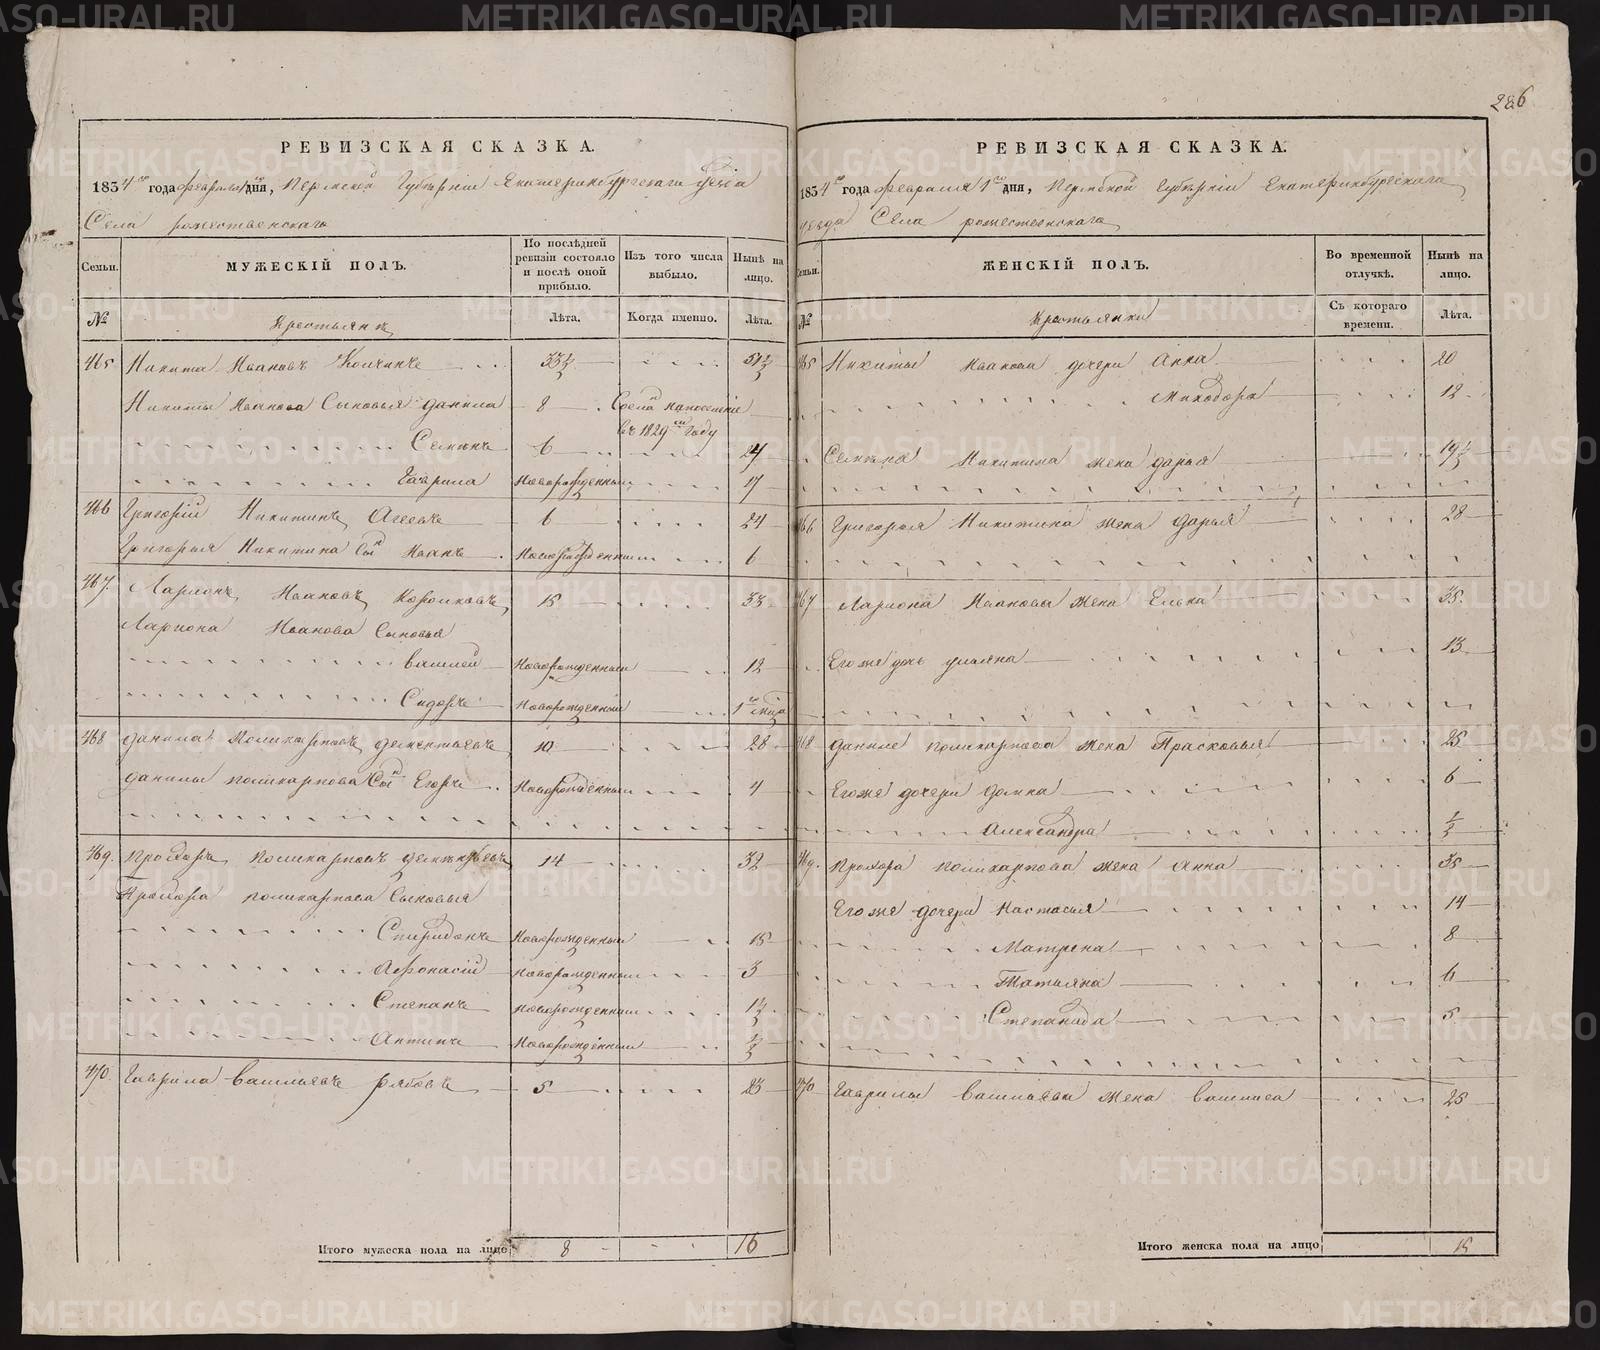 286
РЕВИЗСКАЯ СКАЗКА.
1834 го года февраля 1 дня, Пермской Губернiи Екатеринбургскаго уезда
Села рожественскаго
Семьи.
МУЖЕСКIЙ ПОЛЪ.
По послѣдней ревизiи состояло и послѣ оной прибыло.
Изъ того числа выбыло.
Нынѣ на лицо.
№
Крестьянъ
Лѣта.
Когда именно.
Лѣта.
465 Никита Ивановъ 33½ 51½
Никиты Иванова Сыновья данила 8
въ 1829 году
Семенъ 6 24
Гаврила Новорожденный 17
466 Григорiй Никитинъ Агеевъ 6 24
Григорья Никитина Сын Иванъ Новорожденный 6
467. Ларионъ Ивановъ 15 33
Лариона Иванова Сыновья
василей Новорожденный 12
Сидоръ Новорожденный 1
468 данила Поликарповъ дементьевъ 10 28
данилы поликарпова Сын Егоръ Новорожденный 4
469. Прохоръ Поликарповъ дементьевъ 14 32
Прохора поликарпова Сыновья
Спиридонъ Новорожденный 15
Афонасiй Новорожденный 3
Степанъ новорожденный 1½
Антипъ Новорожденный ½
470. Гаврила васильевъ рябовъ 5 23
Итого мужеска пола на лицо 8 16
РЕВИЗСКАЯ СКАЗКА.
1834 го года февраля 1 го дня, Пермской Губернiи Екатеринбургскаго
уезда Села рожественскаго
Семьи.
ЖЕНСКIЙ ПОЛЪ.
Во временной отлучкѣ.
Нынѣ на лицо.
№
Крестьянки
Съ котораго времени.
Лѣта.
465 Никиты Иванова дочери Анна 20
12
Семена Никитина жена дарья 19½
466 Григорья Никитина жена дарья 28
467 Лариона Иванова жена Елена 35.
Его же дочь ульяна 13
468 данилы поликарпова жена Прасковья 25
Его же дочери домна 6
Александра ½
469. Прохора поликарпова жена Анна 35
Его же дочери Настасья 14
Матрена 8
Татьяна 6
Степанида 5
470 Гаврилы васильева жена василиса 25
Итого женска пола на лицо 15
METRIKI.GASO-URAL.RU